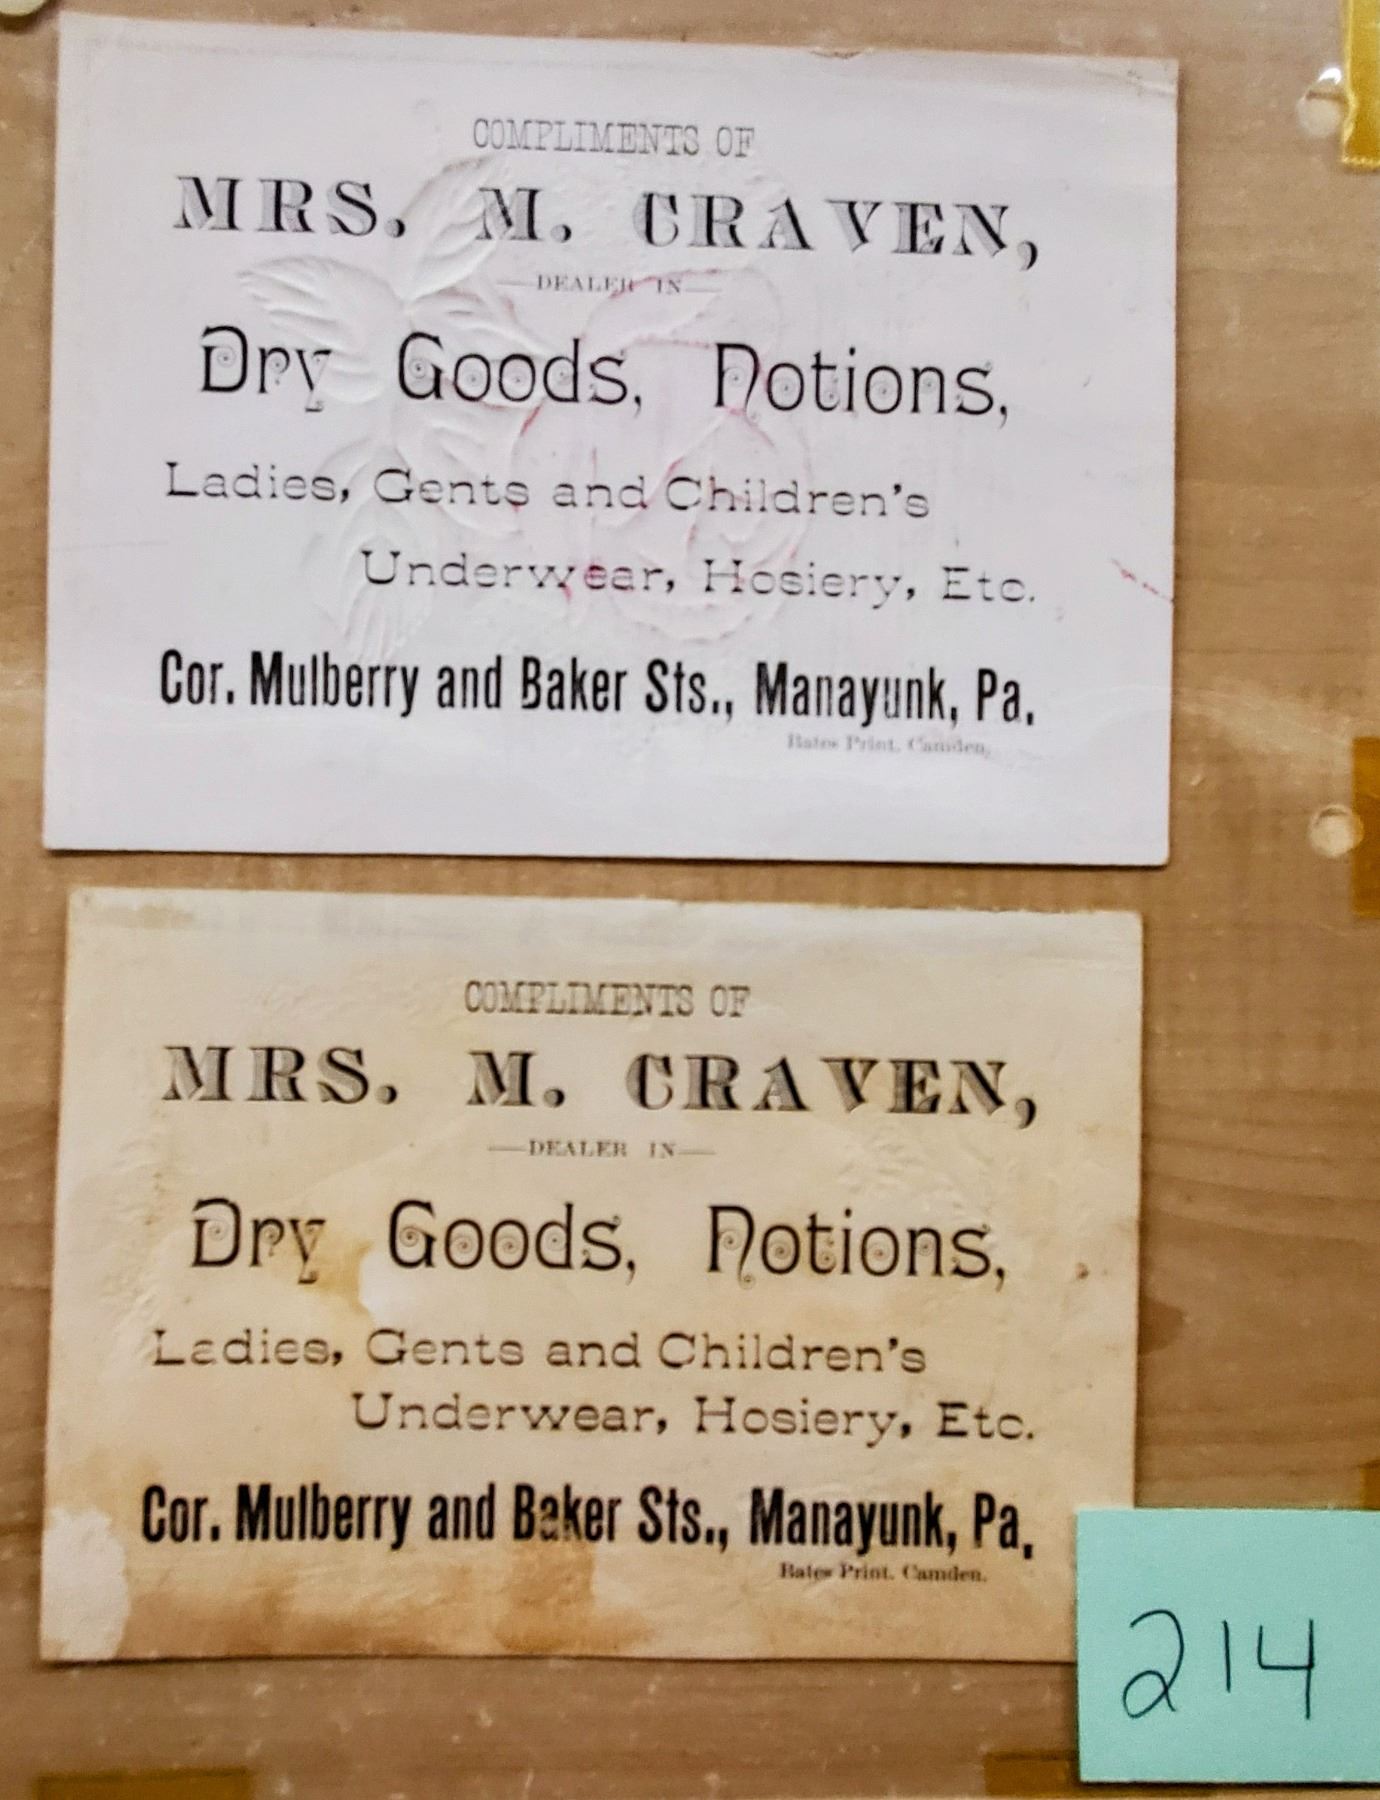 COMPLIMENTS OF
MRS. M. CRAVEN,
—DEALER IN—
Dry Goods, Notions,
Ladies, Gents and Children's
Underwear, Hosiery, Etc.
Cor. Mulberry and Baker Sts., Manayunk, Pa.
Bates Print. Camden.
COMPLIMENTS OF
MRS. M. CRAVEN,
—DEALER IN—
Dry Goods, Notions,
Ladies, Gents and Children's
Underwear, Hosiery, Etc.
Cor. Mulberry and Baker Sts., Manayunk, Pa.
Bates Print. Camden.
214